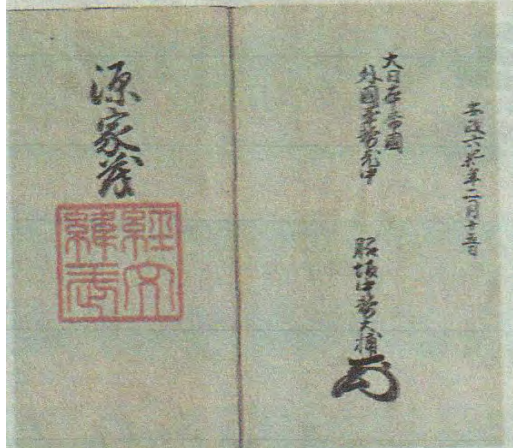 安政六未年二月十五日
大日本帝國
外國事務老中
脇坂中務大輔
源家茂
經文
緯武